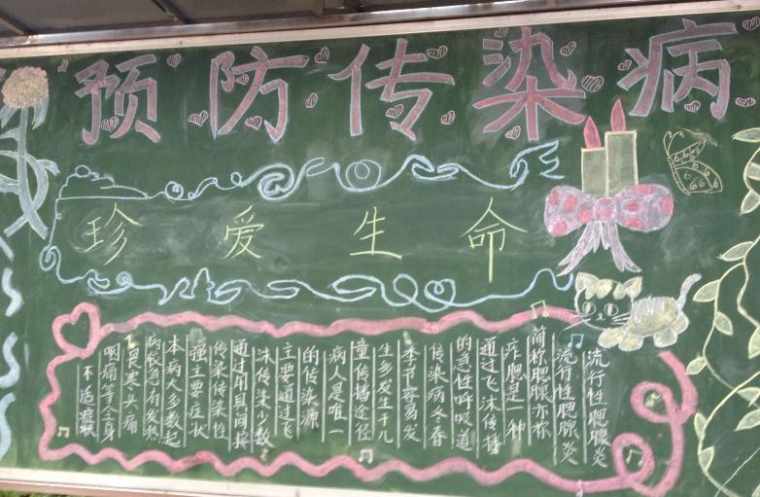 预防传染病
珍爱生命
流行性腮腺炎
流行性腮腺炎
简称腮腺亦称
痄腮是一种
通过飞沫传播
的急性呼吸道
传染病冬春
季节容易发
生多发生于儿
童传播途径
病人是唯一
的传染源
主要通过飞
沫传染少数
通过用具间接
传染传染性
强主要症状
本病大多数起
病较急有发热
畏寒头痛
咽痛等全身
不适症状